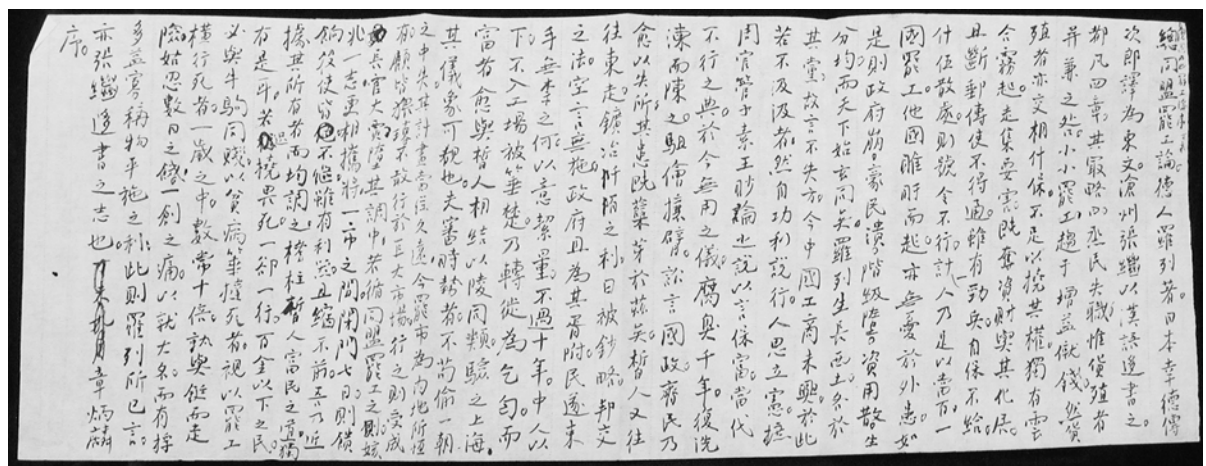 總同盟罷工論德人羅列著。日本幸德傳
次郎譯為東文滄州張繼以漢語迻書之。
都凡四章。其取略以烝民失職惟貨殖者
并兼之咎。小小罷工。趨于增益餼錢。然貨
殖者亦交相什保。不足以撓其權。獨有雲
合霧起。走集要害。既奪資財。與其化居。
且斷郵傳使不得通。雖有勁兵。自保不給
什伍散處。則號令不行。計一人乃足以當百。一
國罷工。他國睢盱而起。亦無憂於外患。如
是則政府崩。豪民潰。階級墮。資用散。生
分均而天下始玄同矣。羅列生長西土。久於
其黨。故言不失方。今中國工商未興。於此
若不汲汲者。然自功利說行。人思立憲。摭
周官管子素王眇論之說。以言保富。當代
不行之典。於今無用之儀。腐臭千年。復洗
湅而陳之。駔儈攘臂。訟言國政。齊民乃
愈以失所。其患既櫱芽於矣。晳人又往
往東走。鑛冶阡陌之利。日被鈔略。邦交
之法。空言無施。政府且為其胥附。民遂束
手無奈之何。以意絜量。不過十年。中人以
下。不入工場被箠楚。乃轉徙為乞匄。而
富者愈與晳人相結以陵同類。驗之上海。
其儀象可覩也。夫審時勢者。不苟偷一朝
之中失。其計畫當從久遠。今罷市為內地所恆
有。顧皆猥瑣不敢行於巨大市場。行之則受威
兵官大賈。隤其調中。若循同盟罷工之則。姟
兆一志。更相攜將。一市之間。閉門七日。則饋
餉役使皆不給。雖有利器。且縮不前。吾乃近
據其所有者。而均調之。橙柱晳人富民之道。獨
有是耳。若思撓畏死。一卻一行。百金以下之民。
必與牛馬同賤。以貧病箠撻死者。視以罷工
橫行死者。一歲之中。數常十倍。孰與鋌而走
險。姑忍數日之饑。一創之痛。以就大名。而有捊
多益寡稱物平施之利。此則羅列所已言。
亦張繼迻書之志也。章炳麟
序。